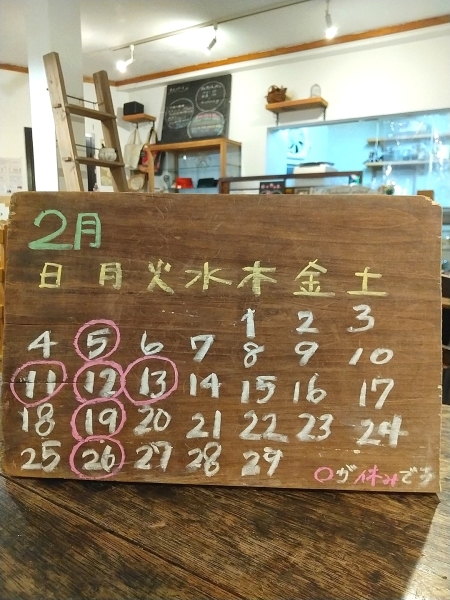 2月
日 月 火 水 木 金 土
1 2 3
4 5 6 7 8 9 10
11 12 13 14 15 16 17
18 19 20 21 22 23 24
25 26 27 28 29
○が休みです